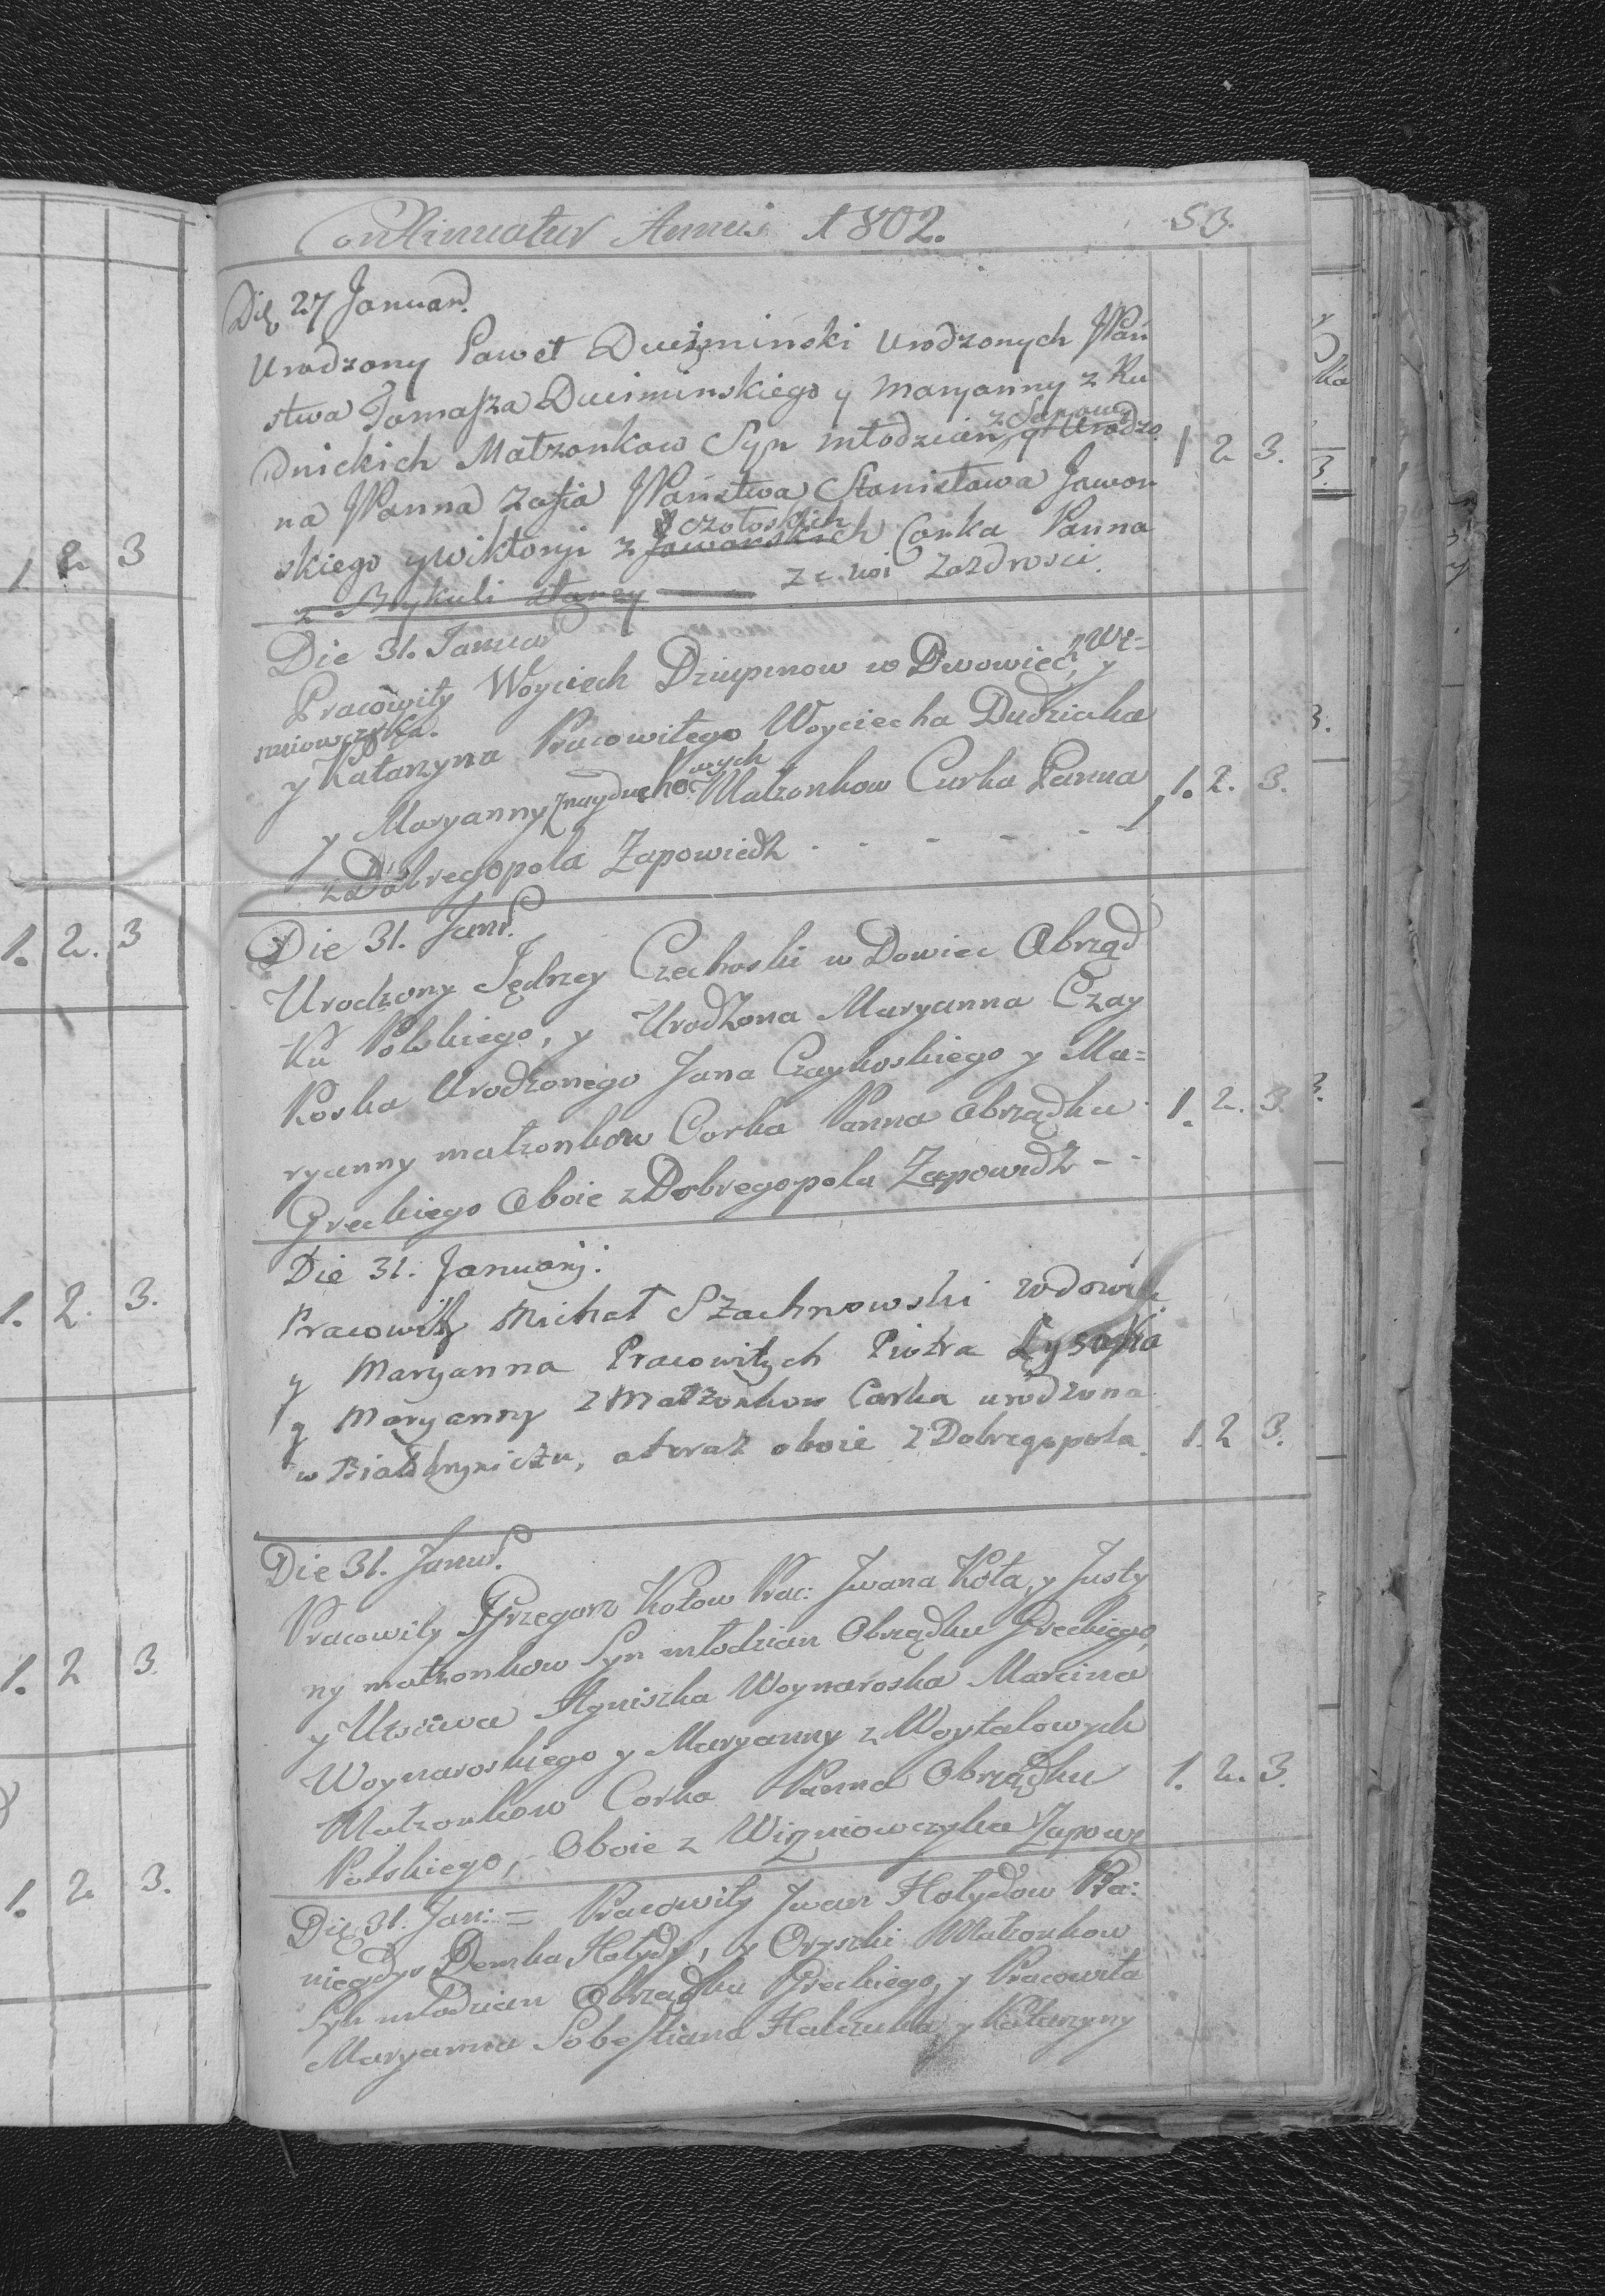 Continuatur Annus 1802. 53.
Die 27 Januar.
Urodzony Paweł Duczyminski Urodzonych Pań
stwa Tomasza Duciminskiego y Maryanny z Ru
dnickich Małzonkow Syn młodzian y Urodzo
na Panna Zofia Państwa Stanisława Jawor
skiego y Wiktoryi z Jaworskich Corka Panna 1 2 3.
z Bykuli Starey ze wsi Zazdrosci.
Die 31. Januar
Pracowity Woyciech Dziupinow w Dwowiec, z Wi=
sniowczyka.
y Katarzyna Pracowitego Woyciecha Dudziaka
y Maryanny Małzonkow Curka Panna 1. 2. 3.
z Dobregopola Zapowiedz - - - - -
Die 31. Janr.
Urodzony Jędrzey Czechoski w Dowiec Obrząd
ku Polskiego, y Urodzona Maryanna Czay
koska Urodzonego Jana Czaykoskiego y Ma=
ryanny małzonkow Corka Panna obrządku 1. 2. 3.
Greckiego Oboie z Dobregopola Zapowiedz - -
Die 31. Januarij.
Pracowity Michał Szachnowski wdowiec
y Maryanna Pracowitych Piotra Łysaka
y Maryanny z Małzonkow Corka urodzona
w Białokryniczu, a teraz oboie z Dobregopola 1. 2 3.
Die 31. Januar.
Pracowity Grzegorz Kotow Prac: Jwana Kota, y Justy
ny małzonkow Syn młodzian Obrządku Greckiego,
y Uczciwa Agniszka Woynaroska Marcina
Woynaroskiego y Maryanny z Woytalowych
Małzonkow Corka Panna Obrządku 1. 2. 3.
Polskiego, - Oboie z Wizniowczyka Zapow
Die 31. Jan: = Pracowity Jwan Hołydow Pra:
niegdys Demka Hołydy, y Oryszki Małzonkow
Syn młodzian Obrządku Greckiego, y Pracowita
Maryanna Sobestiana Halczuka y Katarzyny